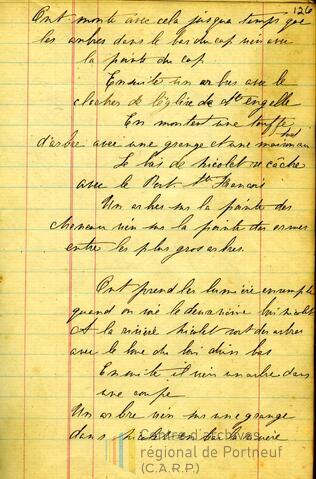 126
Ont monte avec cela jusqua temps que
les arbres dans le bas du cap vien avec
la pointe du cap
Ensuite un arbres avec le
clocher de l'Eglise de Ste engelle
En montent une touffe
d'arbre avec une grange et une maison au sud
Le bas de nicolet se câche
avec le Port St Francois
Un arbres sur la pointe des
cheneau vien sur la pointe des ormes
entre les plus gros arbres.
Ont prend les lumiere ensemple
quand on voie le deuxieme boi nicolet
A la riviere Nicolet sont des arbres
avec le boue du boi d'un bas
Ensuite il vien un arbre dans
une coupe
Un arbre vien sur une grange
dans nicolet en bas la riviere
Centre d'archives
régional de Portneuf
(C.A.R.P.)